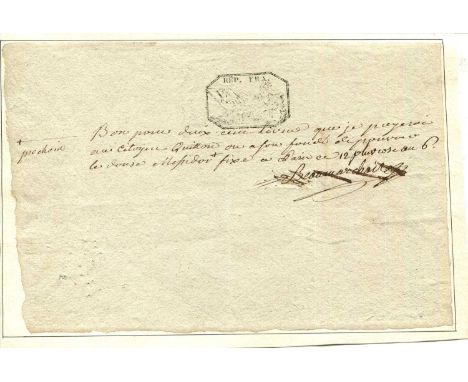 REP. FRA.
Bon pour deux cent livres que je payerai
+ prochain
au Citoyen Guitton ou a son fondé de pouvoir
le douze Messidor + fixe a Paris ce 12 pluviose an 6e
Beaumarchais